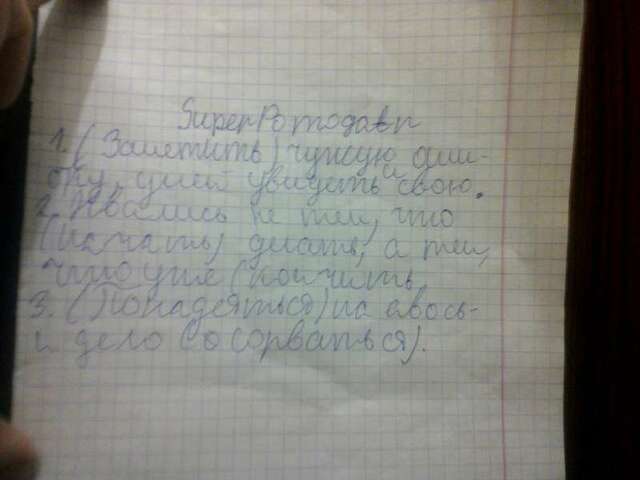 SuperPomogavn
1. (Заметить) чужую оши-
бку, умей увидеть и свою.
2. Хвались не тем, что
(начать) делать, а тем,
что уже (кончить
3. (Понадеяться) на авось-
и дело (сорваться).